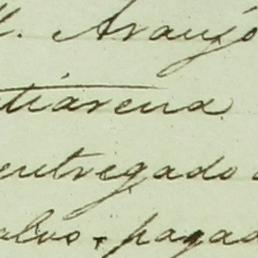 M. Araujo
tiarena
entregado
alvo, pagad